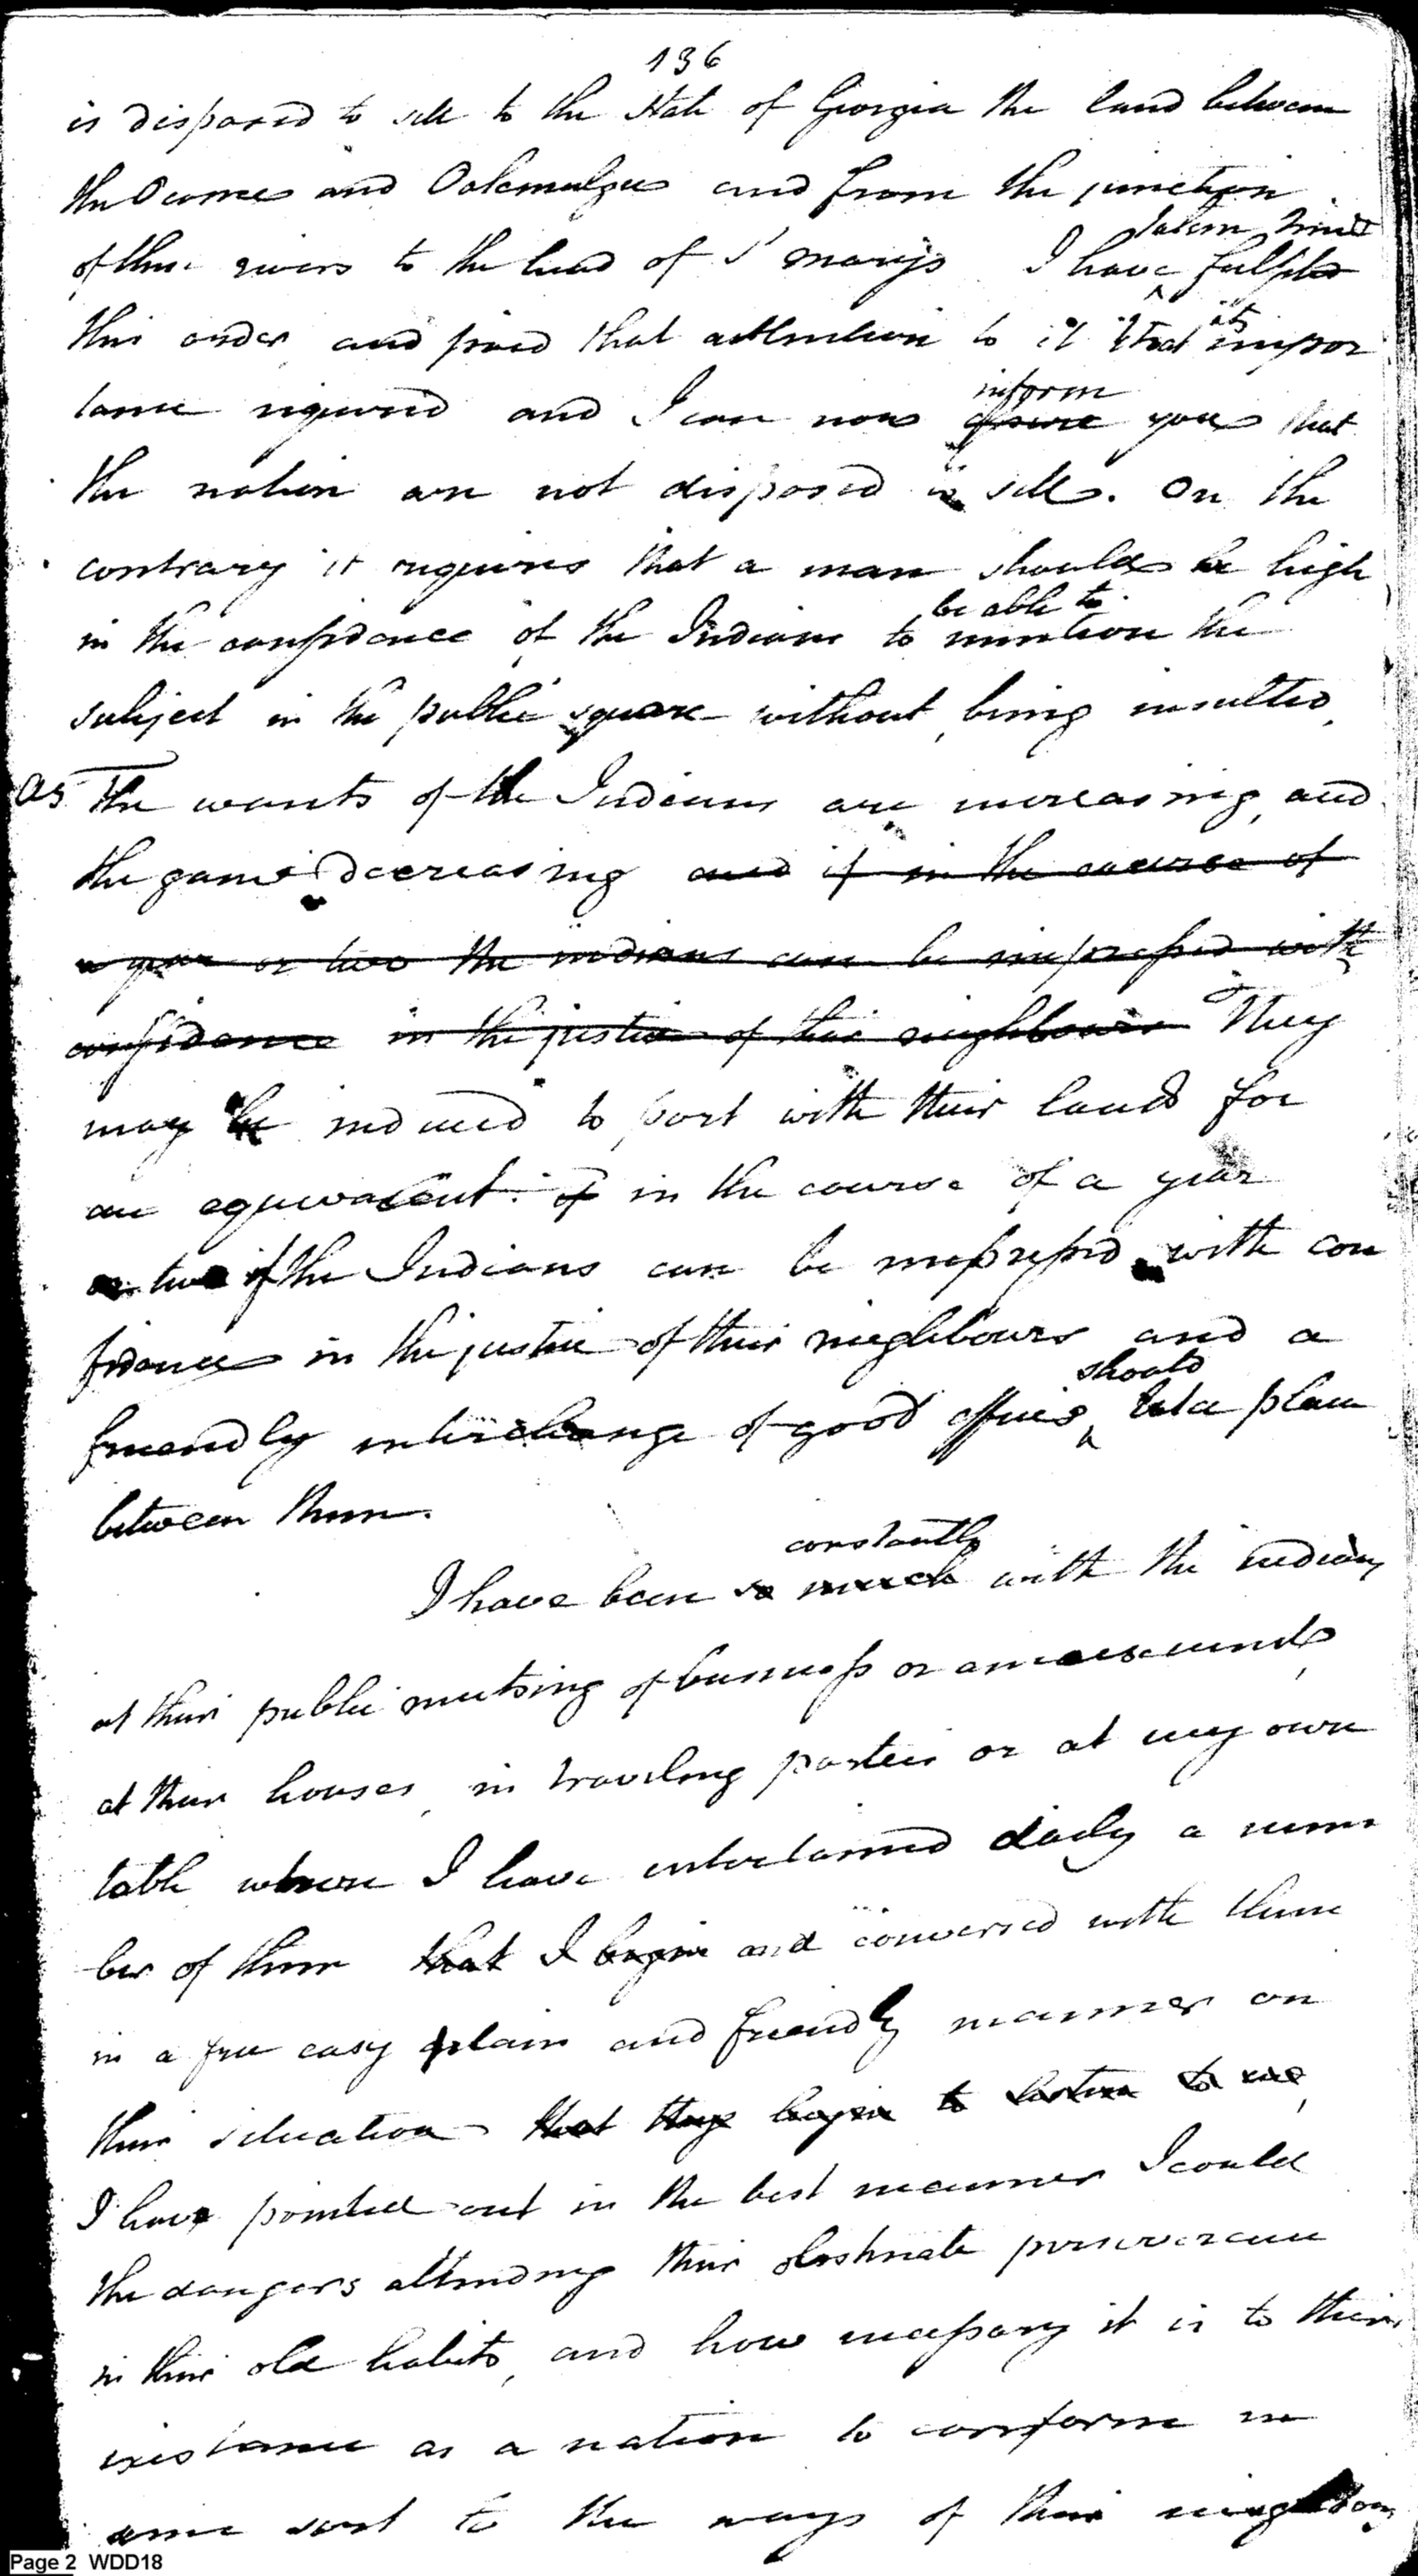 136
is disposed to sell to the State of Georgia the land between
the Oconee and Oakmulgee and from the junction
taken time
of these rivers to the head of St marys I have fulfiled
its
this order and paid that attention to it that impor
inform
tance required and I can now assure you that
the nation are not disposed to sell. On the
contrary it requires that a man should be high
be able to
in the confidence of the Indians to mention the
subject in the public square without being insulted
As The wants of the Indians are increasing, and
the game decreasing and if in the course of
a year or two the indians can be impressed with
confidence in the justice of their neighbours They
may be induced to part with their lands for
an equivalent. if in the course of a year
or two if the Indians can be impressed with con
fidence in the justice of their neighbours and a
should
friendly interchange of good offices take place
between them.
constantly
I have been so much with the indians
at their public meeting of business or amusements
at their houses, in traveling parties or at my own
table where I have entertained daily a num
ber of them that I begin and conversed with them
in a free easy plain and friendly manner on
their situation that they begin to listen to me,
I have pointed out in the best manner I could
the dangers attending their obstinate perseverance
in their old habits, and how necessary it is to their
existance as a nation to conform in
some sort to the ways of their neighbours
Page 2 WDD18